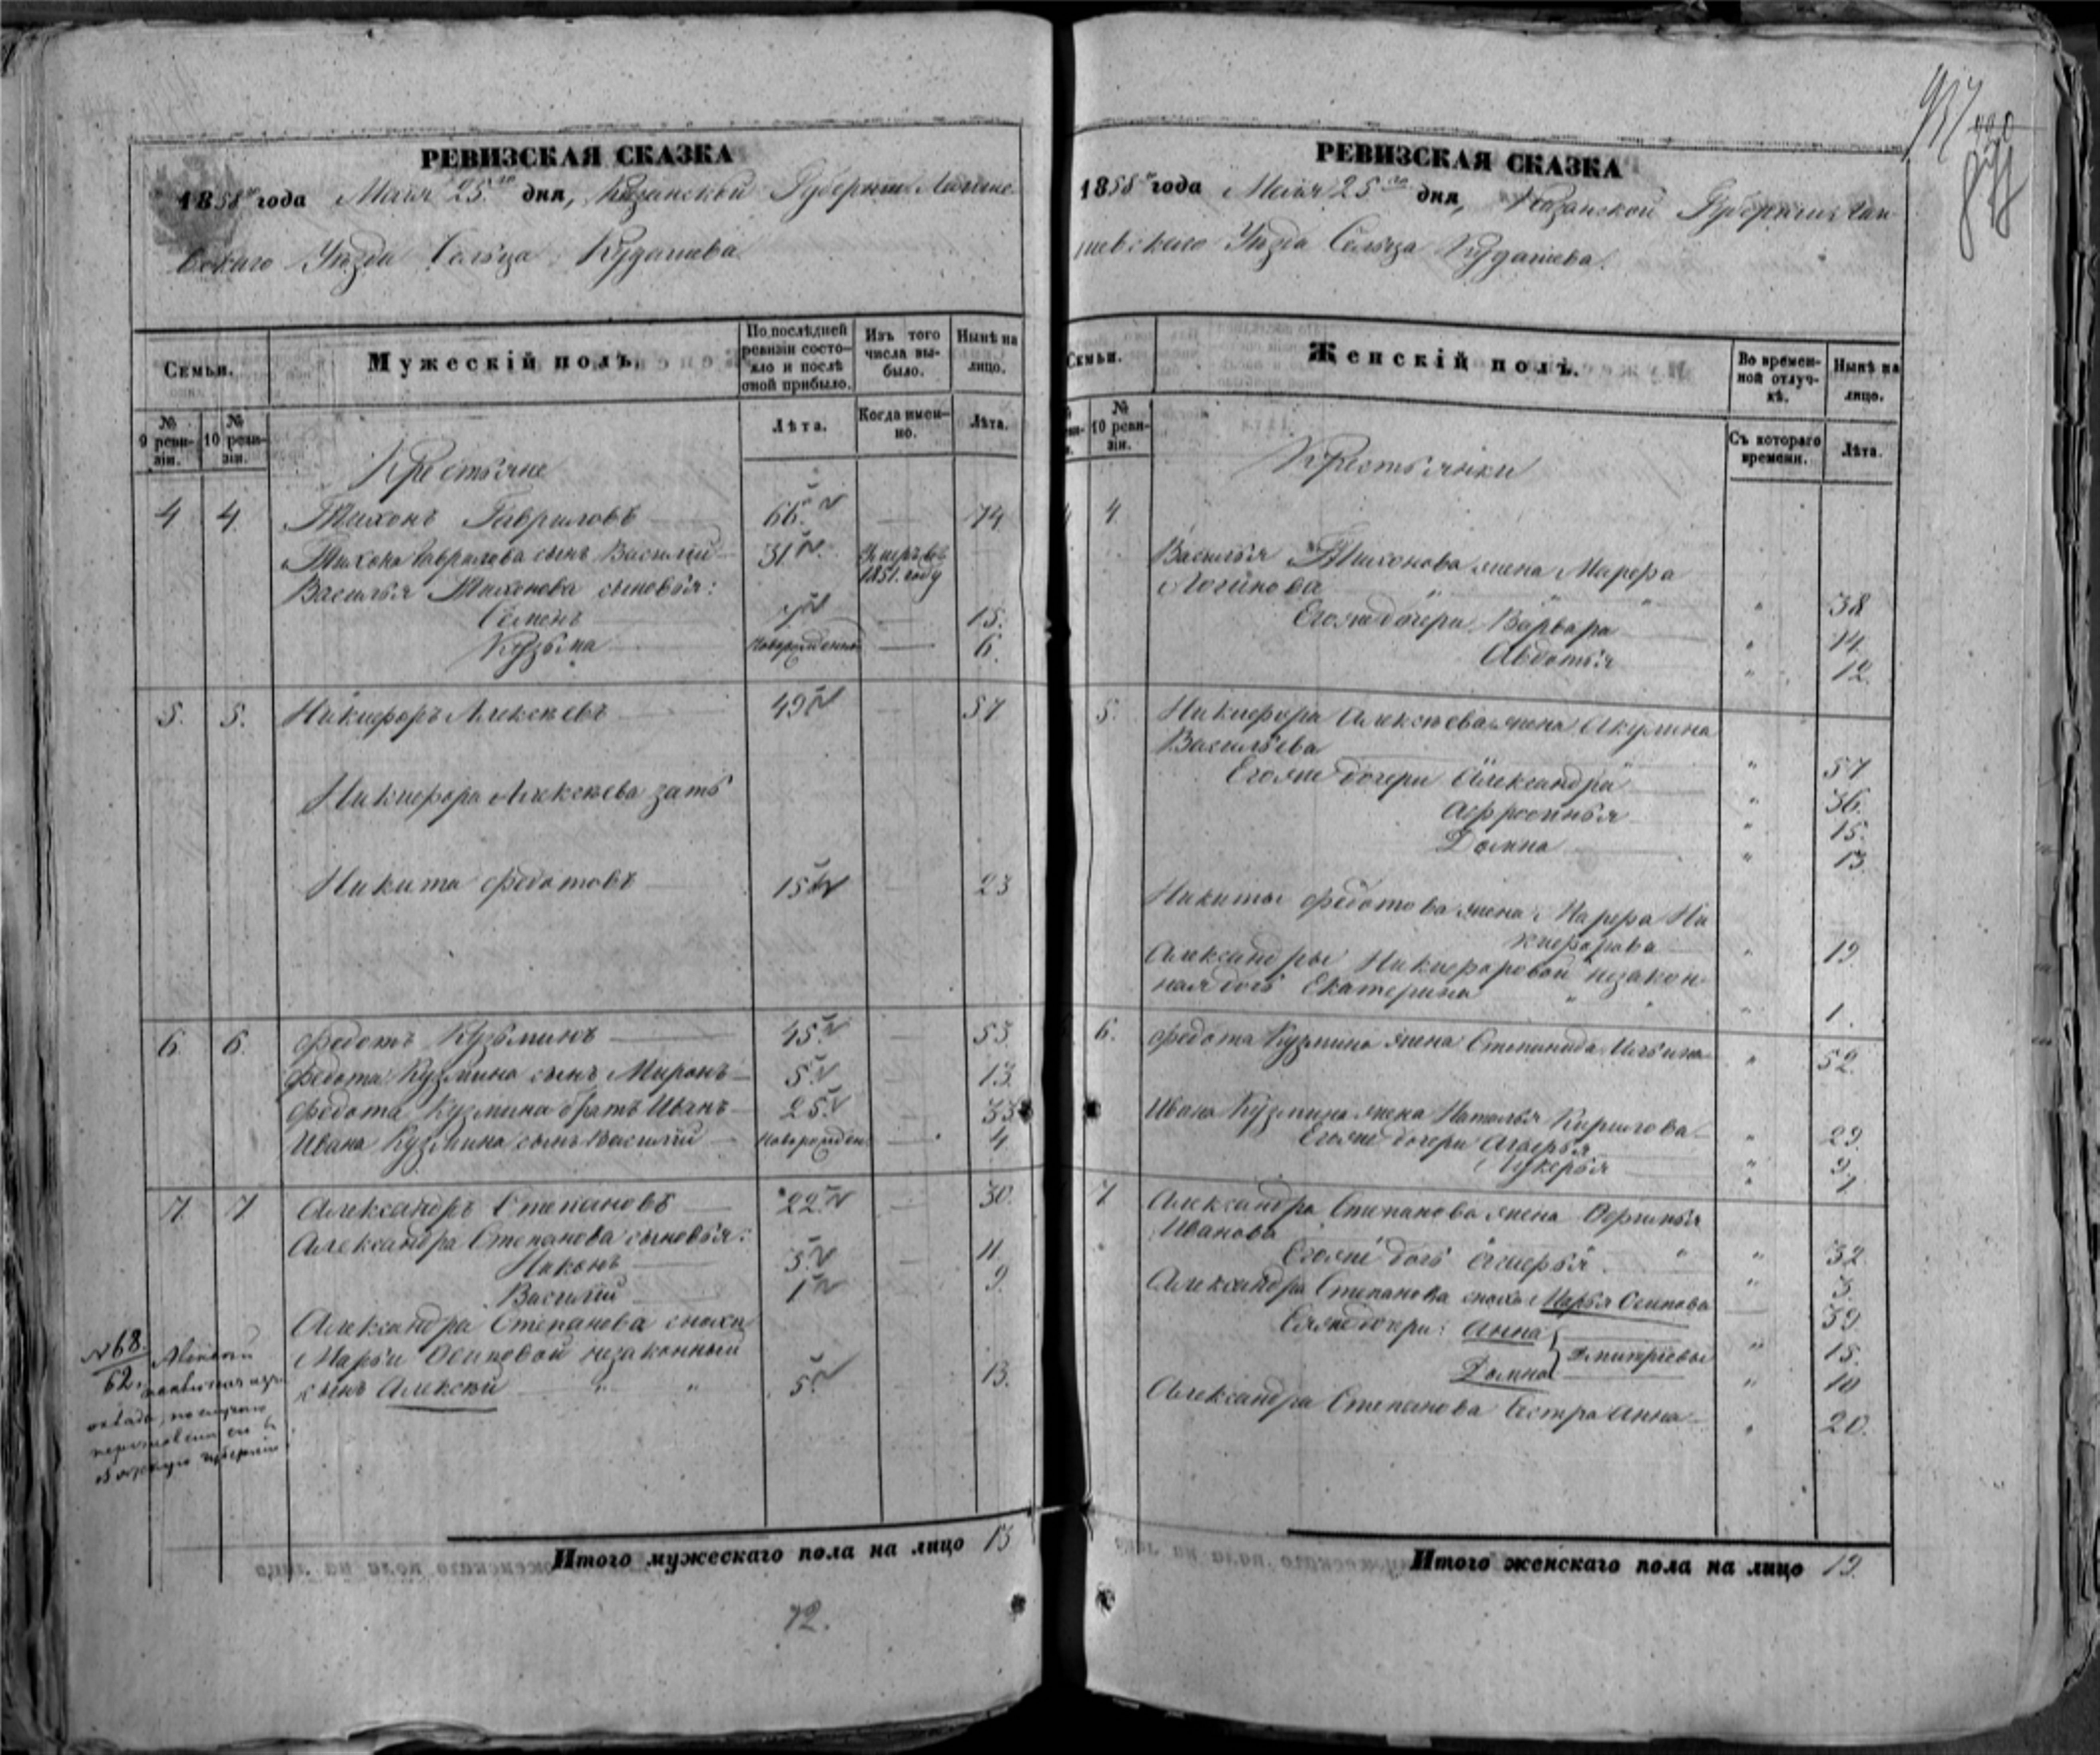 РЕВИЗСКАЯ СКАЗКА
1858го года Маія 25го дня, Казанской Губерніи Лаише
вскаго Уѣзда Сельца Кудашева
Семьи.
Мужескій полъ.
По послѣдней ревизіи состояло и послѣ оной прибыло.
Изъ того числа выбыло.
Нынѣ на лицо.
№ 9 ревизіи.
№ 10 ревизіи.
Лѣта.
Когда именно.
Лѣта.
Крестьяне
4 4. Тихонъ Гавриловъ 66. — 74
Тихона Гаврилова сынъ Василій 31 Умеръ въ 1851. году
Василья Тихонова сыновья:
Семенъ 7 — 15.
Кузьма новорожденный — 6.
5. 5. Никифоръ Алексѣевъ 49 — 57
Никифора Алексѣева зять
Никита Федотовъ 15 — 23
6 6. Федотъ Кузьминъ 45 — 53.
Федота Кузмина сынъ Миронъ 5. — 13.
Федота Кузмина братъ Иванъ 25. — 33
Ивана Кузмина сынъ Василій новорожден — 4
7. 7. Александръ Степановъ 22. — 30.
Александра Степанова сыновья:
Никонъ 3. — 11
Василій 1 — 9.
Александра Степанова снохи
Марьи Осиповой незаконный
сынъ Алексѣй " " 5. 13.
№ 68.
62.
Итого мужескаго пола на лицо 15
12.
РЕВИЗСКАЯ СКАЗКА
1858го года Маія 25го дня, Казанской Губерніи Лаи
шевскаго Уѣзда Сельца Кудашева.
Семьи.
Женскій полъ.
Во временной отлучкѣ.
Нынѣ на лицо.
№ 10 ревизіи.
Съ котораго времени.
Лѣта.
Крестьянки
4. Василья Тихонова жена Марфа
Логинова " " " 38
Егоже дочери Варвара " 14
Авдотья " 12.
5. Никифора Алексѣева жена Акулина
Васильева " 57
Егоже дочери Александра " 36.
Афросинья " 15.
Домна " 13
Никиты Федотова жена Марфа Ни
кифорова " 19.
Александры Никифоровой незакон
ная дочь Екатерина " " " 1.
6. Федота Кузмина жена Степанида Ильина " 52.
Ивана Кузмина жена Наталья Кирилова " 29.
Егоже дочери " 9
Лукерья " 7
7 Александра Степанова жена
Иванова " 32
Егоже дочь " 3.
Александра Степанова сноха Марья Осипова 39.
Еяже дочери: Анна } Дмитріевы " 15.
Домна " 10
Александра Степанова Сестра Анна " 20.
Итого женскаго пола на лицо 19.